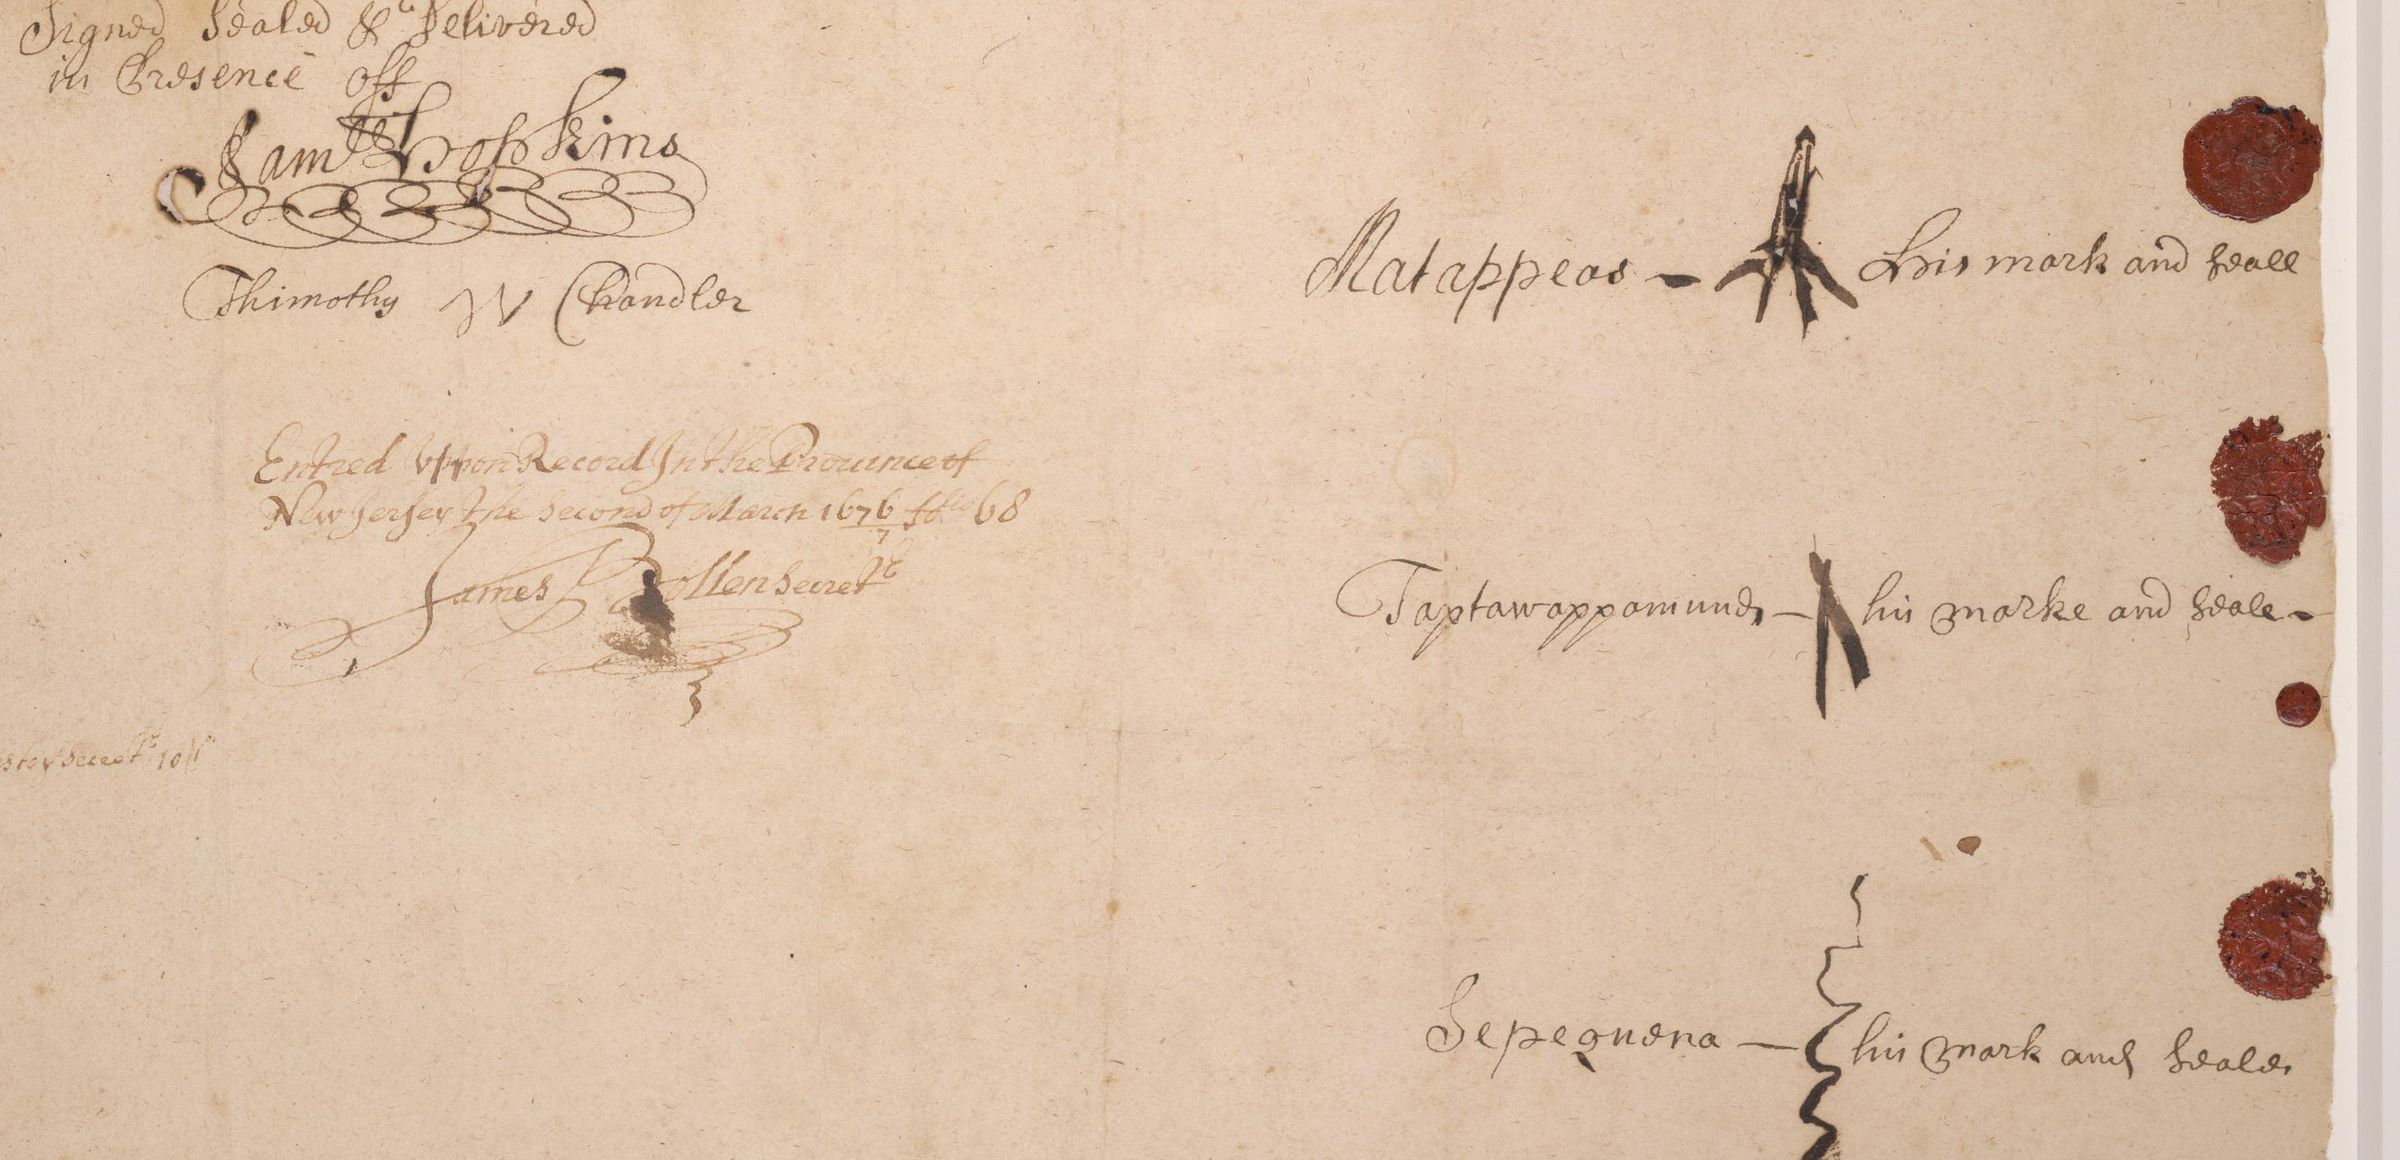 Signed Sealed & Delivered
in Presence off
Sam^ll Hopkins
Thimothy W Chandler
Entred Vppon Record In the Prouince of
New Jersey the Second of March 1676/7 ffolio 68
James Bollen Secret^re
Secret^re
Matappeas - his mark and Seall
Taptawappamund, - his marke and Seale -
Sepequena - his mark and Seale,